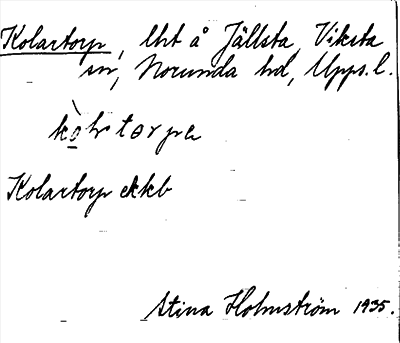 Kolartorp, lht å Jällsta, Viksta
sn, Norunda hd, Upps. l.
kòlatorpa
Kolartorp ekkb
Stina Holmström 1935.